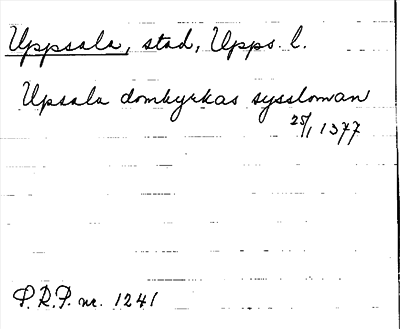 Uppsala, stad, Upps. l.
Upsala domkyrkas syssloman
25/1 1377
P.R.P. nr. 1241